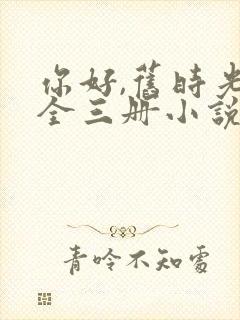 你好,舊時光
全三册小說
青呤不知處